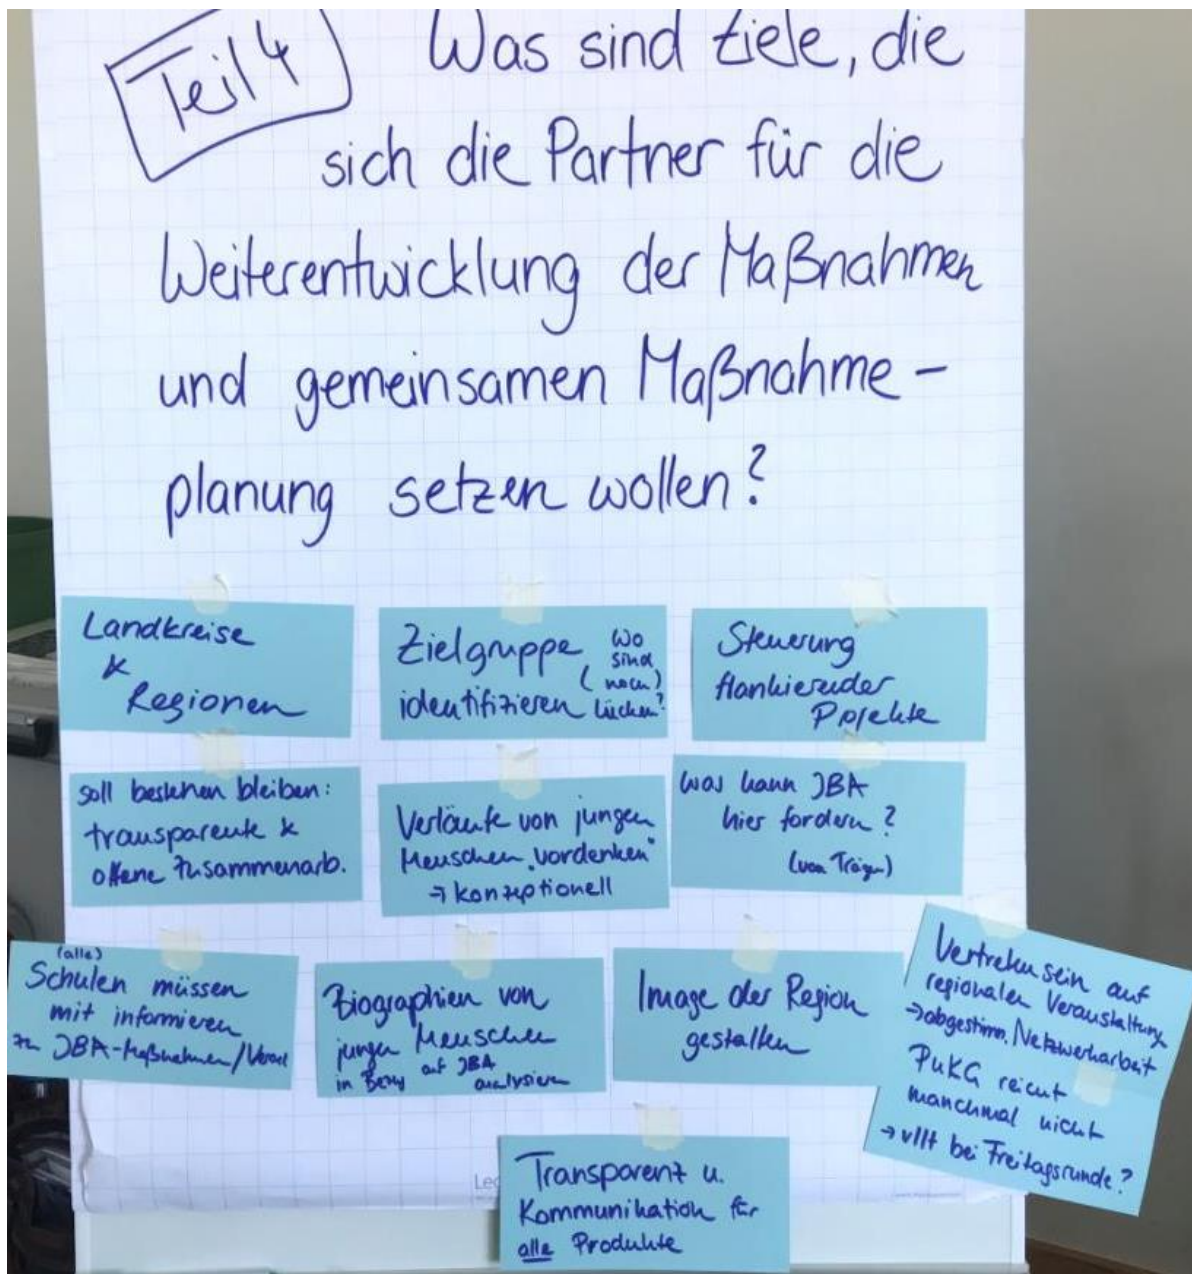 Teil 4
Was sind Ziele, die
sich die Partner für die
Weiterentwicklung der Maßnahmen
und gemeinsamen Maßnahme-
planung setzen wollen?
Landkreise
&
Regionen
Zielgruppe
identifizieren
(Wo
sind
noch
Lücken?)
Steuerung
flankierender
Projekte
soll bestehen bleiben:
transparente &
offene Zusammenarb.
Verläufe von jungen
Menschen "vordenken"
→ konzeptionell
Was kann JBA
hier fordern?
(von Träger)
(alle)
Schulen müssen
mit informieren
zu JBA-Maßnahmen/
Biographien von
jungen Menschen
in Bezug auf JBA
analysieren
Image der Region
gestalten
Vertreten sein auf
regionalen Veranstaltung
→ abgestimm. Netzwerkarbeit
PuKG reicht
manchmal nicht
→ vllt bei Freitagsrunde?
Transparenz u.
Kommunikation für
alle Produkte